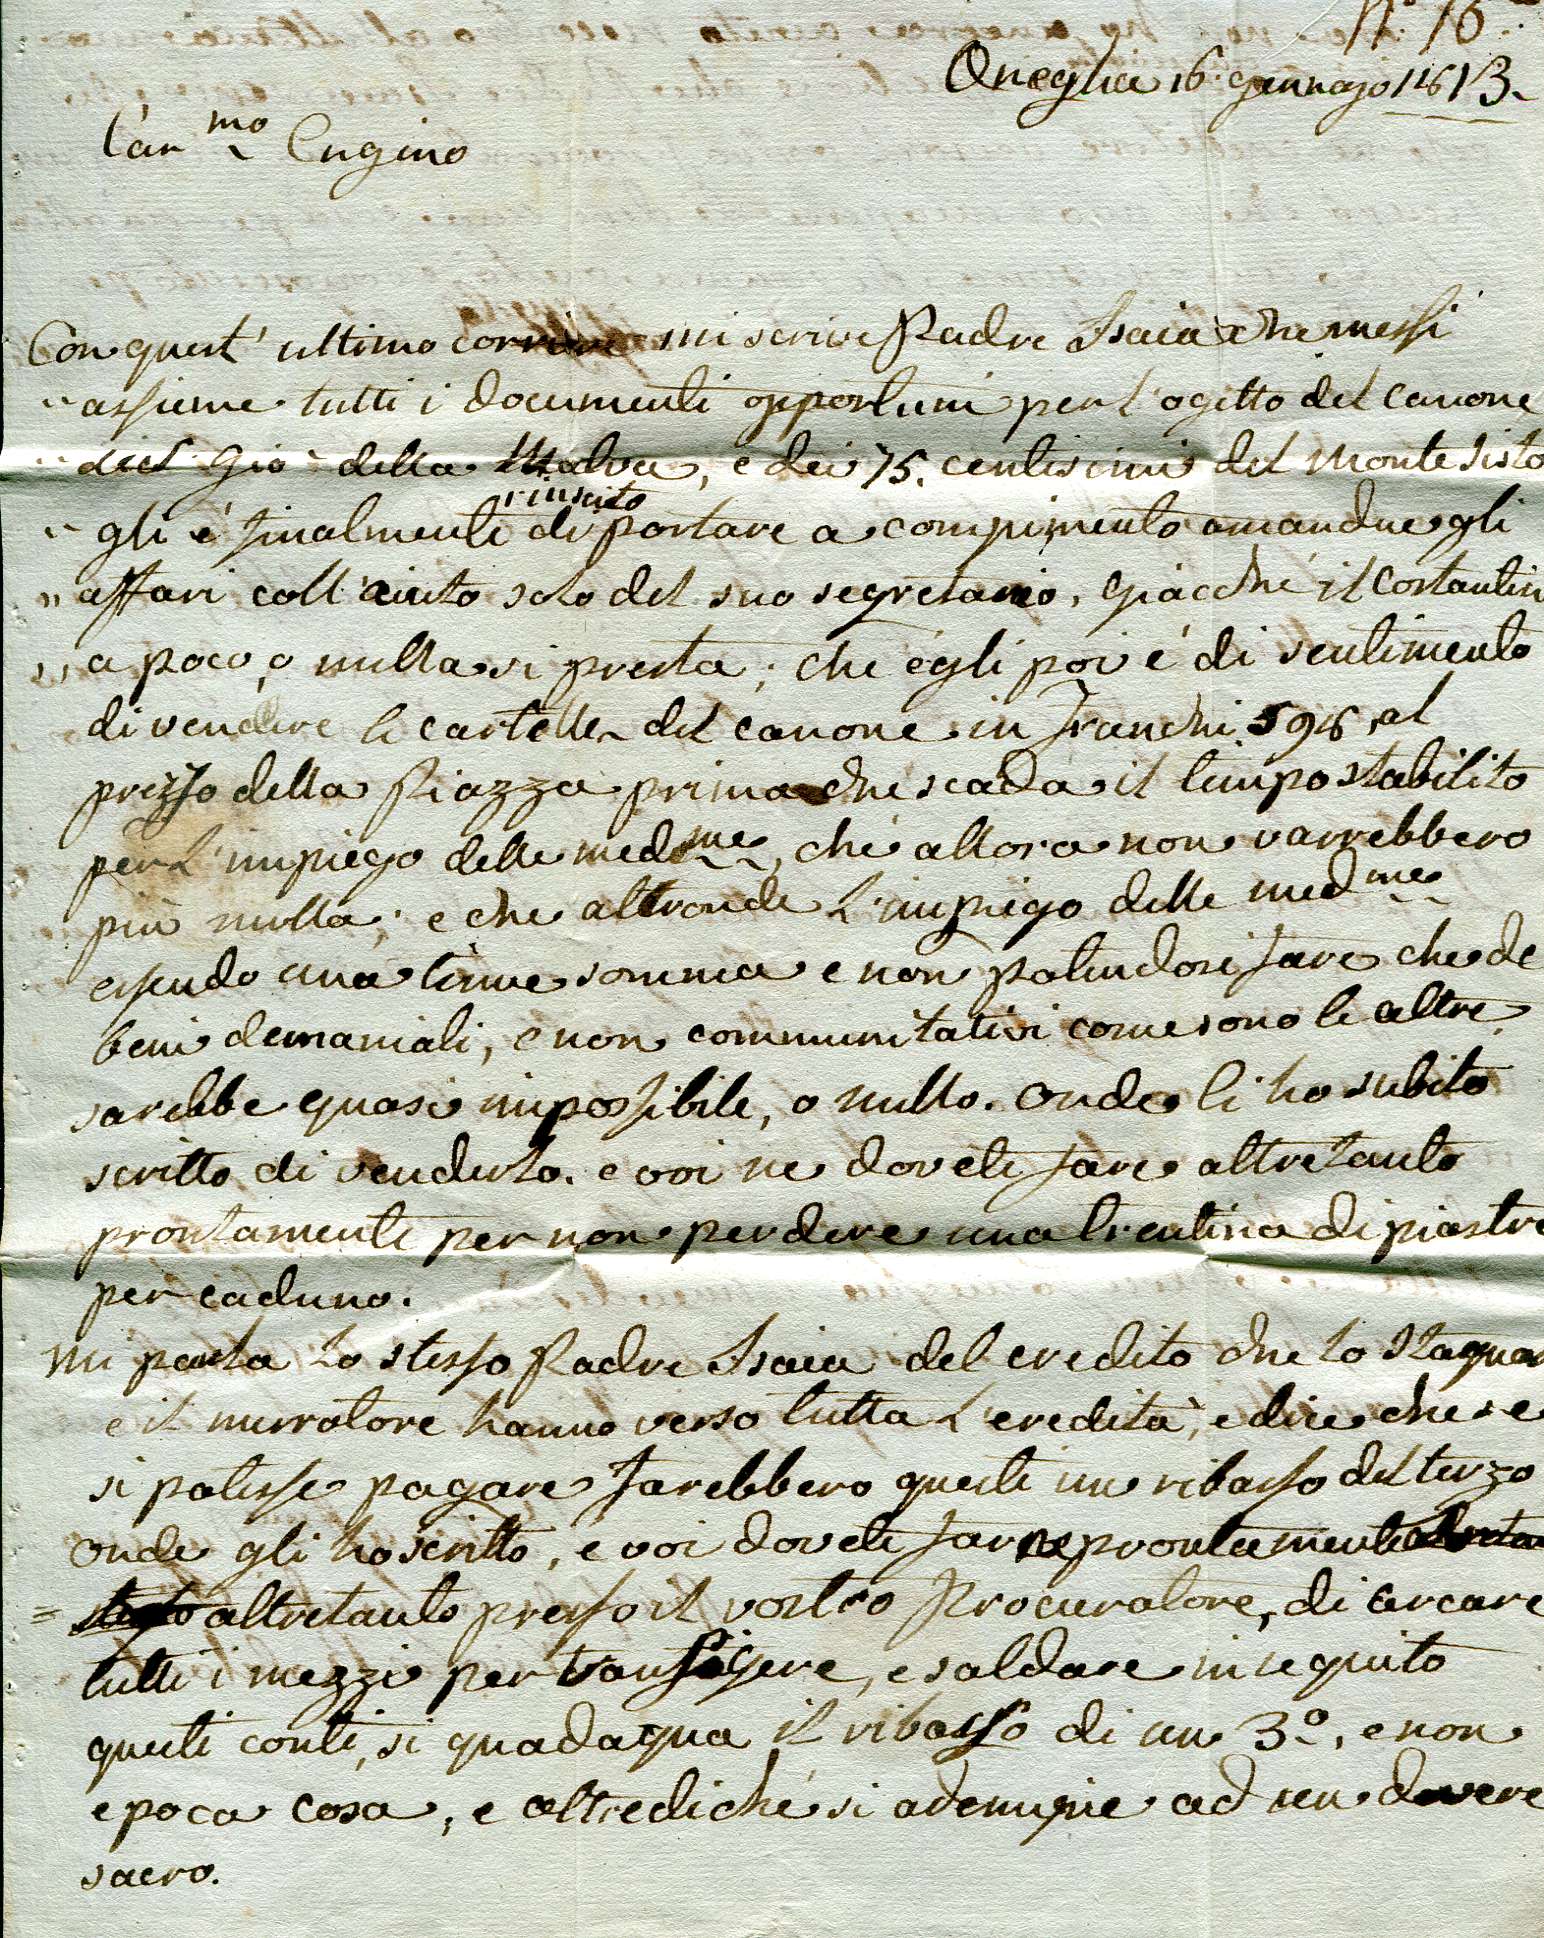 N.° 16.
Oneglia 16. gennajo 1813.
Car.mo Cugino
Con quest' ultimo corriere mi scrive Padre Isaia che messi
" assieme tutti i documenti opportuni per l'ogetto del canone
" del Gio della Malva, e dei 75. centesimi del Monte Sisto
" gli é finalmente riuscito di portare a compimento amandue gli
" affari coll' aiuto solo del suo segretario, giacché il Costantin
" a poco, o nulla si presta; che égli poi é di sentimento
di vendere le cartelle del canone in franchi 598, al
prezzo della Piazza prima che scada il tempo stabilito
per l'impiego delle med.me, ché allora non varrebbero
più nulla; e che altronde l'impiego delle med.me
essendo una tenue somma e non potendosi fare che de
beni demaniali, e non communitativi come sono le altre
sarebbe quasi impossibile, o nullo. Onde li ho subito
scritto di venderlo. e voi ne dovete fare altretanto
prontamente per non perdere una trentina di piastre
per caduno.
Mi parla lo stesso Padre Isaia del credito che lo Stagnar
e il murratore hanno verso tutta l'eredità, e dice che se
si potesse pagare farebbero questi un ribasso del terzo
Onde gli ho scritto, e voi dovete farne prontamente
= altretanto presso il vostro Procuratore, di cercare
tutti i mezzi per transigere, e saldare in seguito
questi conti, si guadagna il ribasso di un 3.°, e non
e poca cosa, e oltrediché si adempie ad un dovere
sacro.